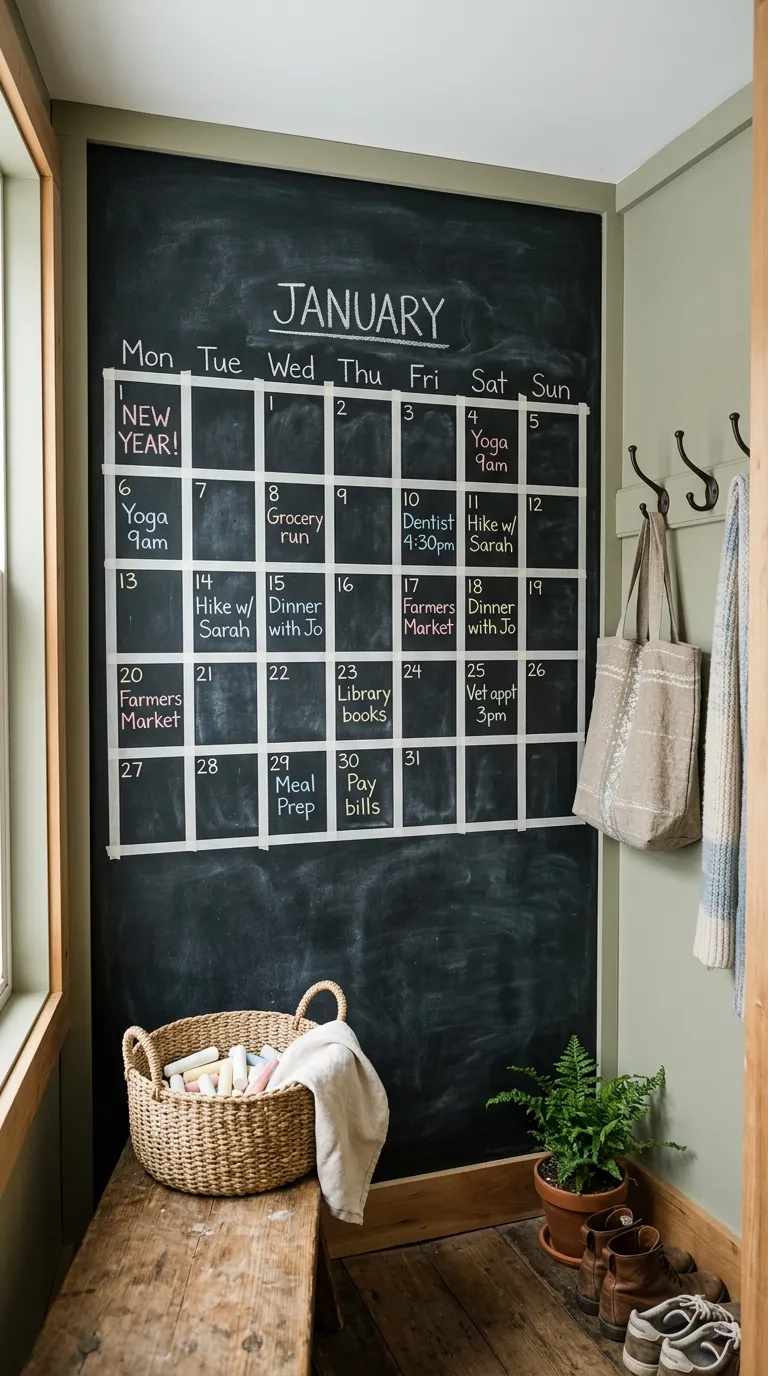 JANUARY
Mon Tue Wed Thu Fri Sat Sun
1 1 2 3 4 5
NEW Yoga
YEAR! 9am
6 7 8 9 10 11 12
Yoga Grocery Dentist Hike w/
9am run 4:30pm Sarah
13 14 15 16 17 18 19
Hike w/ Dinner Farmers Dinner
Sarah with Jo Market with Jo
20 21 22 23 24 25 26
Farmers Library Vet appt
Market books 3pm
27 28 29 30 31
Meal Pay
Prep bills